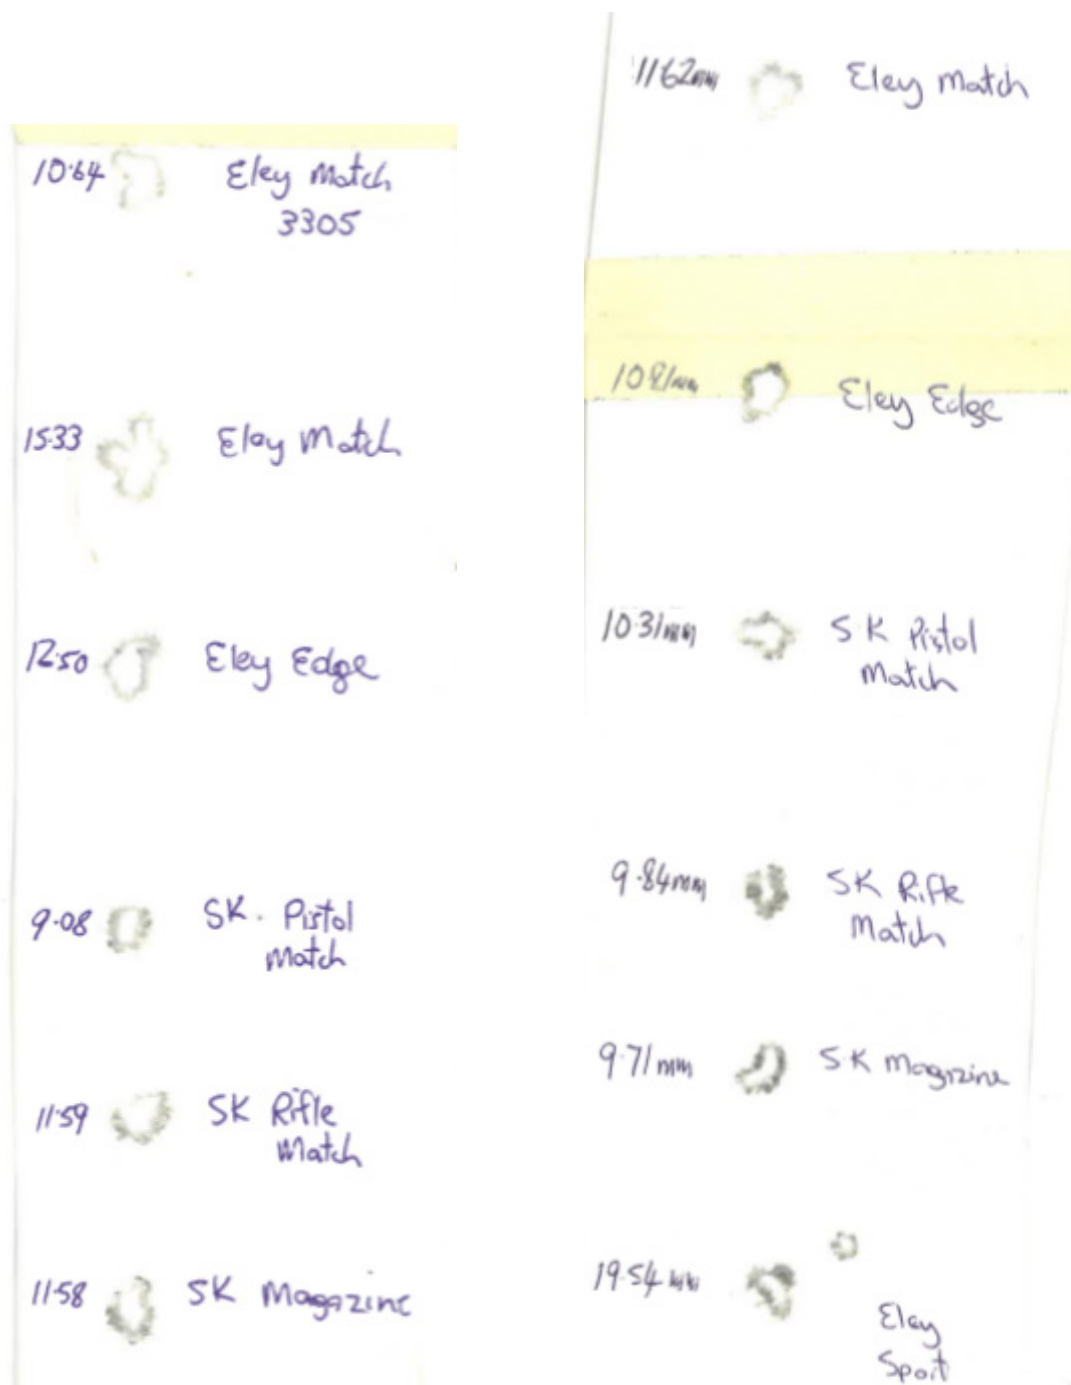 10.64 Eley Match
3305
15.33 Eley Match
12.50 Eley Edge
9.08 SK. Pistol
Match
11.59 SK Rifle
Match
11.58 SK Magazine
11.62mm Eley Match
10.81mm Eley Edge
10.31mm SK Pistol
Match
9.84mm SK Rifle
Match
9.71mm SK Magazine
19.54mm Eley
Sport